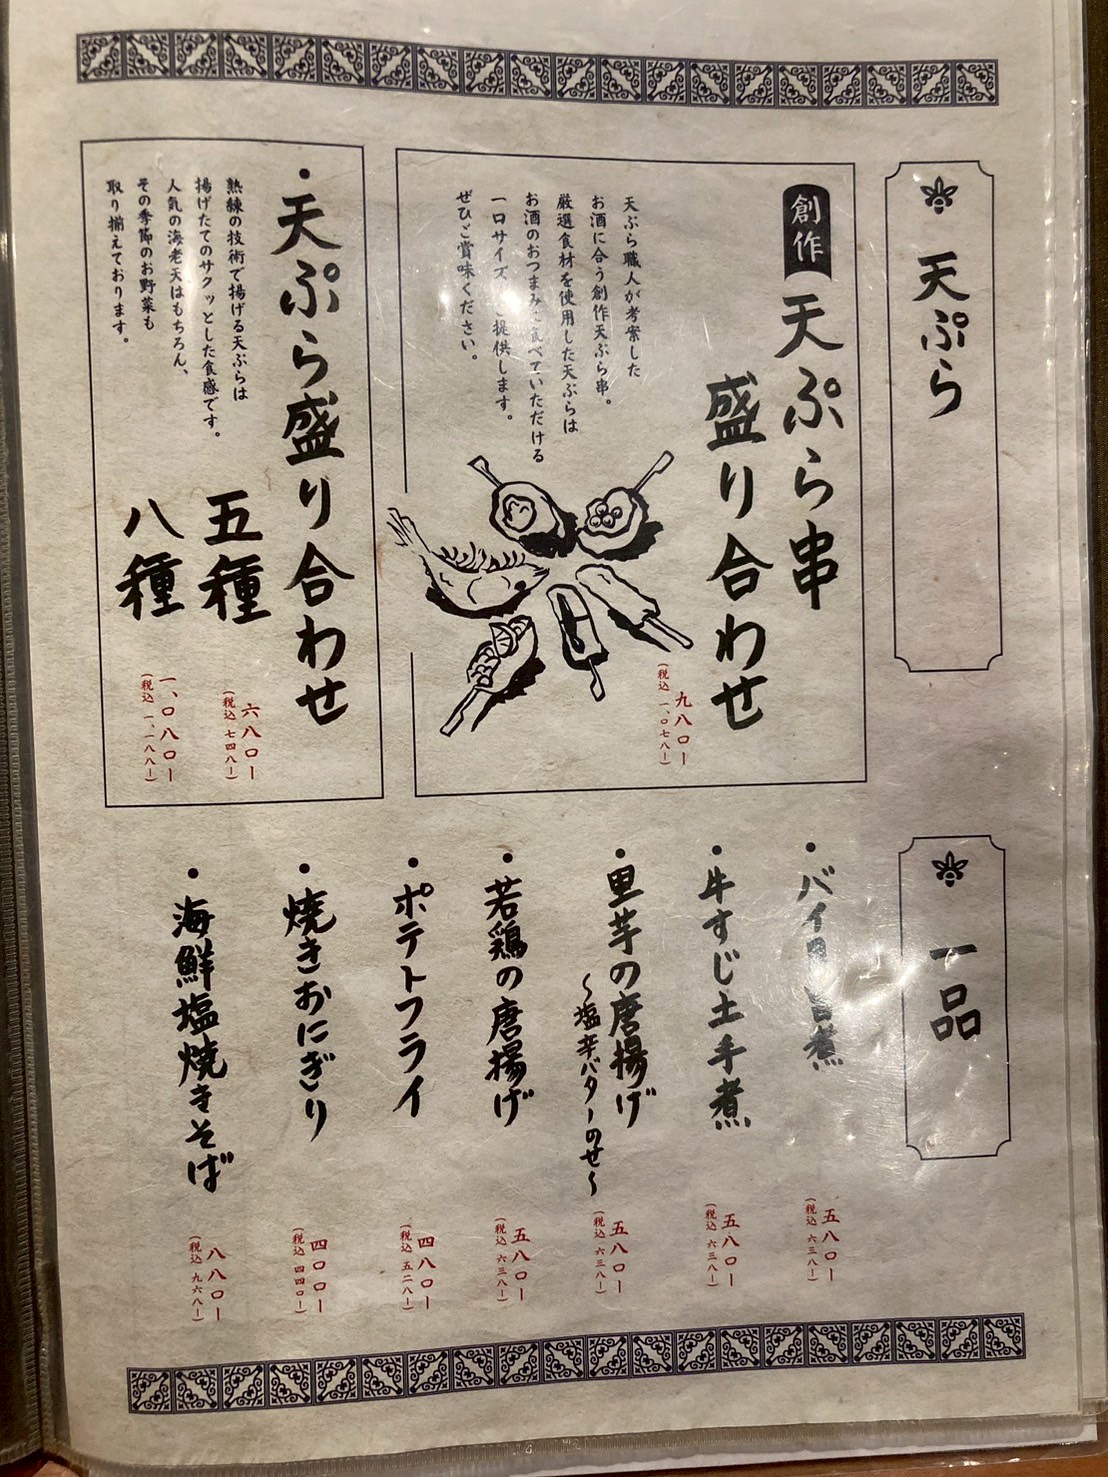 天ぷら
創作
天ぷら串
盛り合わせ
天ぷら職人が考案した
お酒に合う創作天ぷら串。
厳選食材を使用した天ぷらは
お酒のおつまみに食べていただける
一口サイズ 提供します。
ぜひご賞味ください。
九八〇ー
(税込 一、〇七八ー)
・天ぷら盛り合わせ
熟練の技術で揚げる天ぷらは
揚げたてのサクッとした食感です。
人気の海老天はもちろん、
その季節のお野菜も
取り揃えております。
五種
六八〇ー
(税込 七四八ー)
八種
一、〇八〇ー
(税込 一、一八八ー)
一品
・バイ 旨煮
五八〇ー
(税込 六三八ー)
・牛すじ土手煮
五八〇ー
(税込 六三八ー)
・里芋の唐揚げ
〜塩辛バターのせ〜
五八〇ー
(税込 六三八ー)
・若鶏の唐揚げ
五八〇ー
(税込 六三八ー)
・ポテトフライ
四八〇ー
(税込 五二八ー)
・焼きおにぎり
四〇〇ー
(税込 四四〇ー)
・海鮮塩焼きそば
八八〇ー
(税込 九六八ー)